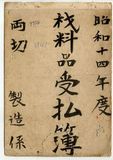 昭和十四年度
材料品受払簿
両切 製造係